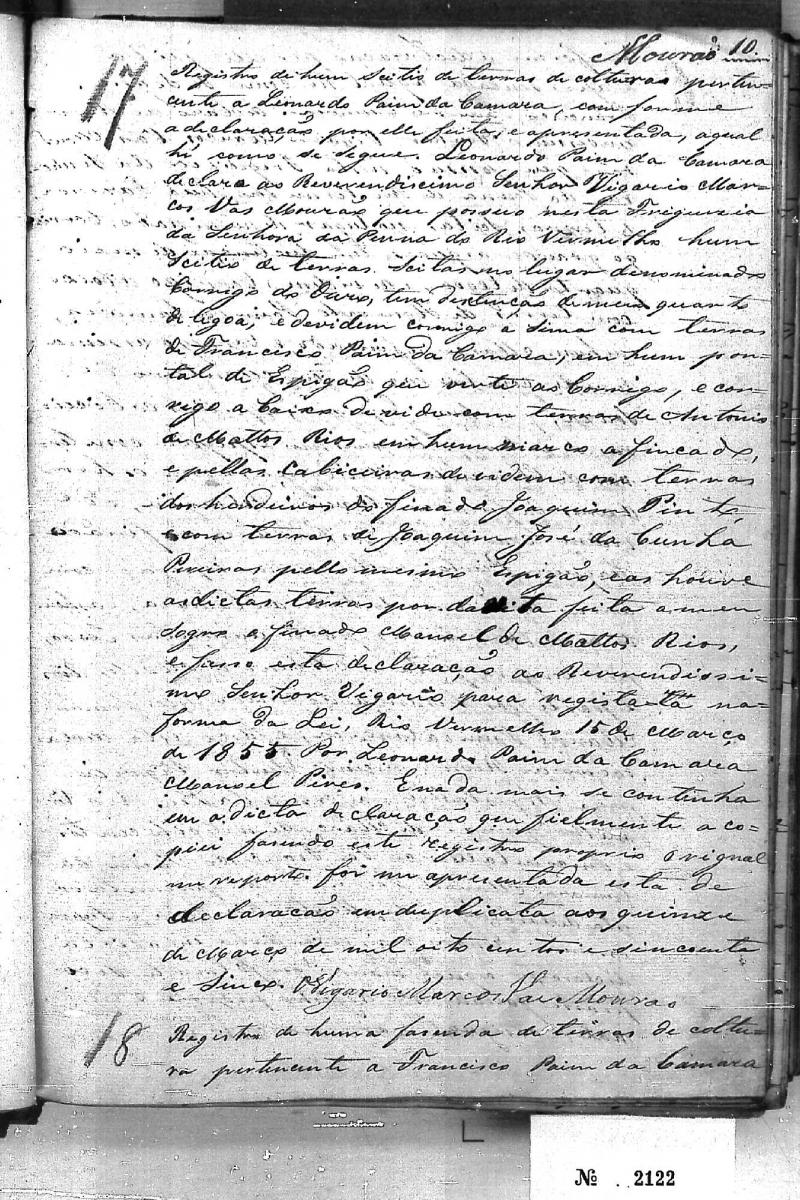 Mourão 10.
17
Registro de hum Scitis de terras de colturas perten=
cente a Leonardo Paim da Camara, com forme
a declaração por elle feita, e apresentada, a qual
hé como se segue. Leonardo Paim da Camara
declara ao Reverendiscimo Senhor Vigario Mar=
cos Vas Mourão que possuo nesta Friguezia
da Senhora da Penna do Rio Vermelho hum
Scitio de terras scitas no lugar denominado
Corrigo do Ouro, tem destenção de meia quarta
de ligoa, e devidem corrigo a Sima com terras
de Francisco Paim da Camara, em hum pon=
tal de Espigão que verte ao Corrigo, e cor=
rigo a Caixo devide com terras de Antonio
de Mattos Rios em hum marco a fincado,
e pellas Cabiceiras devidem com terras
dos herdeiros do finado Joaquim Pinto,
e com terras de Joaquim José da Cunha
Pereiras pello mesmo Espigão, e as houve
as dictas terras por feita a meu
Sogro o finado Manoel de Mattos Rios,
e fasso esta declaração ao Reverendissi=
mo Senhor Vigario para registala na
forma da Lei, Rio Vermelho 15 de Março
de 1855. Por Leonardo Paim da Camara
Manoel Pires. E nada mais se continha
em a dicta declaração que fielmente a co=
piei fasendo este registro proprio Orignal
me reporto. foi me apresentada esta de
declaração em duplicata aos quinze
de Março de mil oito centos e sincoenta
e Sinco. O Vigario Marcos Vas Mourão
18
Registro de huma fasenda de terras de coltu=
ra pertencente a Francisco Paim da Camara
Nº . 2122